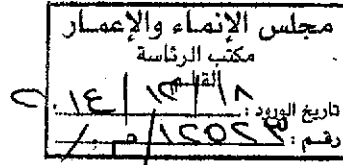 مجلس الإنماء والإعمار
مكتب الرئاسة
القلم
تاريخ الورود : ١٨ / ١٢ / ٢٠١٤
رقم : ١٢٥٢٣ / م